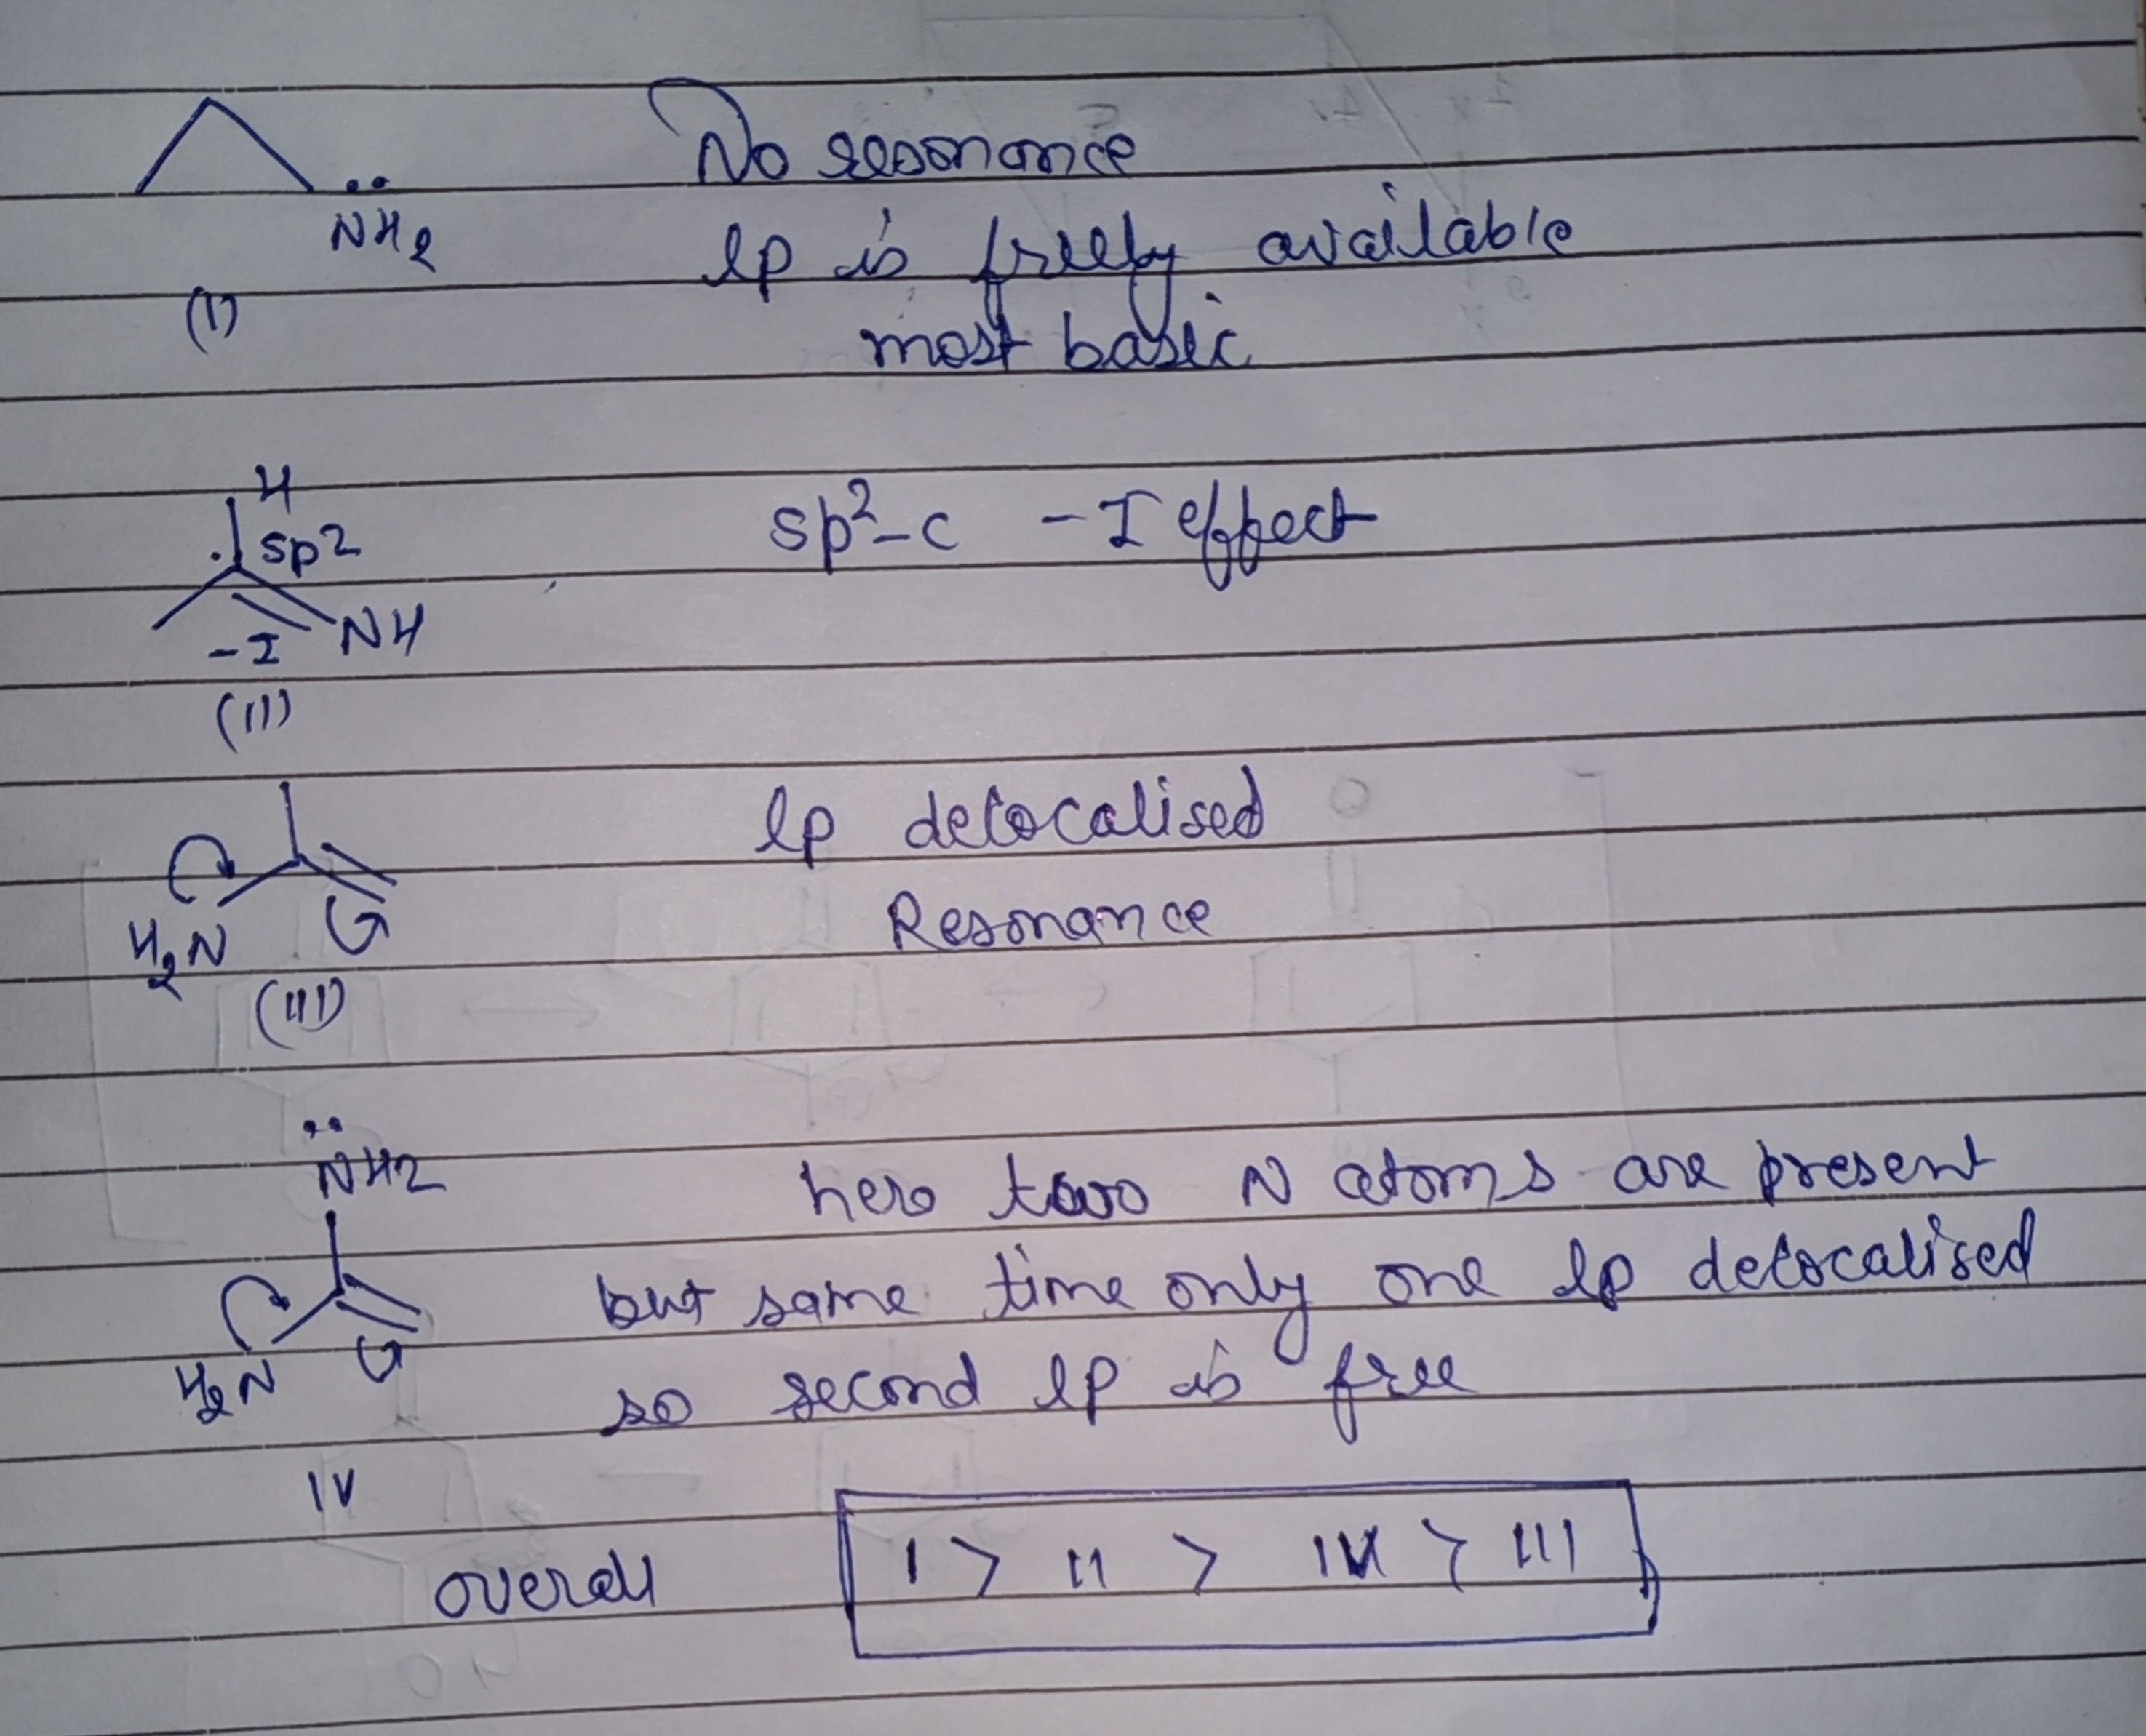 No resonance
NH2
lp is freely available
(I)
most basic
H
sp2
sp2-c -I effect
-I NH
(II)
lp delocalised
Resonance
H2N
(III)
NH2
here two N atoms are present
but same time only one lp delocalised
H2N
so second lp is free
IV
overall I > II > IV > III